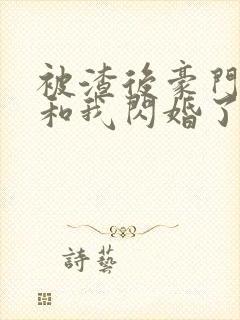 被渣後豪門
和我閃婚了
詩藝